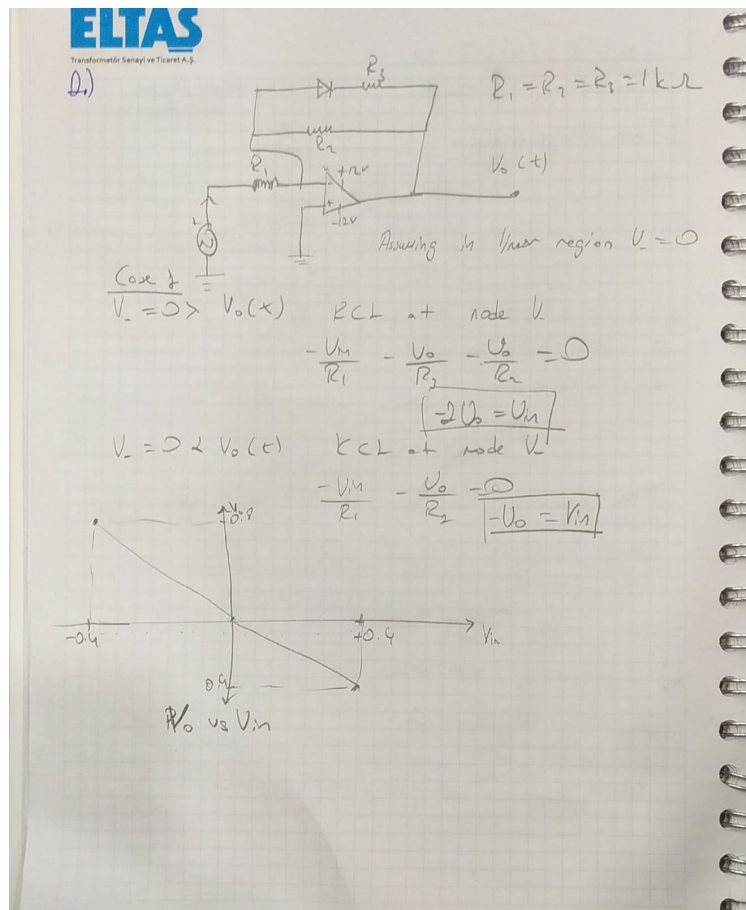 ELTAŞ
Transformatör Sanayi ve Ticaret A.Ş.
2.)
R3
R1 = R2 = R3 = 1kΩ
R2
R1
+12V
Vo(t)
-
+
-12V
Assuming in linear region V- = 0
Case 1
V- = 0 > Vo(t) KCL at node V-
-Vin/R1 - Vo/R3 - Vo/R2 = 0
-2Vo = Vin
V- = 0 < Vo(t) KCL at node V-
-Vin/R1 - Vo/R2 = 0
-Vo = Vin
Vo
0.8
-0.4
+0.4
Vin
0.4
Vo vs Vin